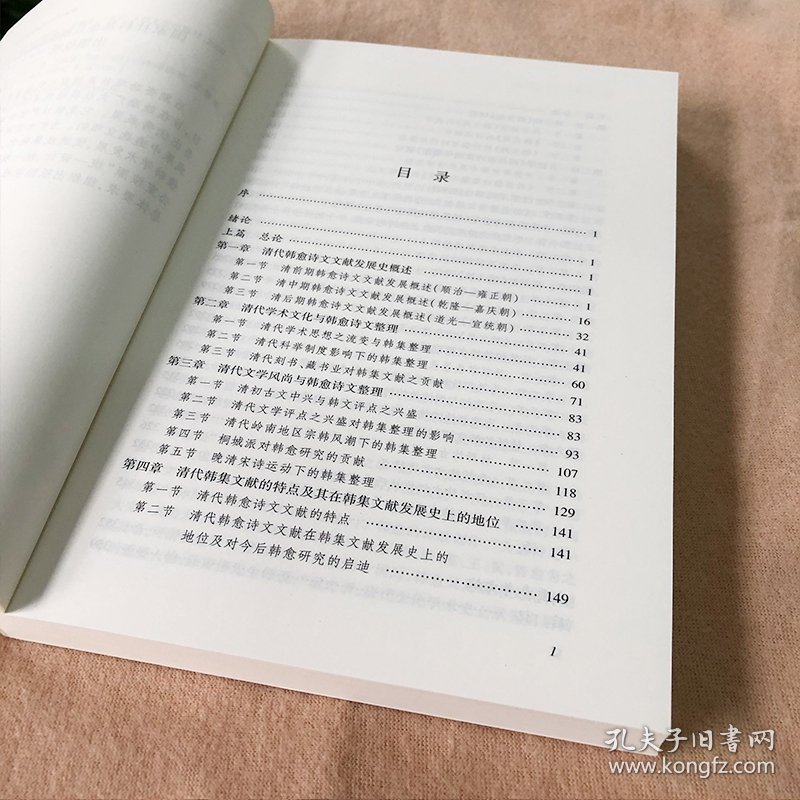 目 录
序 1
绪论 1
上篇 总论 1
第一章 清代韩愈诗文文献发展史概述 1
第一节 清前期韩愈诗文文献发展概述(顺治—雍正朝) 1
第二节 清中期韩愈诗文文献发展概述(乾隆—嘉庆朝) 16
第三节 清后期韩愈诗文文献发展概述(道光—宣统朝) 32
第二章 清代学术文化与韩愈诗文整理 41
第一节 清代学术思想之流变与韩集整理 41
第二节 清代科举制度影响下的韩集整理 60
第三节 清代刻书、藏书业对韩集文献之贡献 71
第三章 清代文学风尚与韩愈诗文整理 83
第一节 清初古文中兴与韩文评点之兴盛 83
第二节 清代文学评点之兴盛对韩集整理的影响 93
第三节 清代岭南地区宗韩风潮下的韩集整理 107
第四节 桐城派对韩愈研究的贡献 118
第五节 晚清宋诗运动下的韩集整理 129
第四章 清代韩集文献的特点及其在韩集文献发展史上的地位 141
第一节 清代韩愈诗文文献的特点 141
第二节 清代韩愈诗文文献在韩集文献发展史上的
地位及对今后韩愈研究的启迪 149
1
孔夫子旧书网
www.kongfz.com